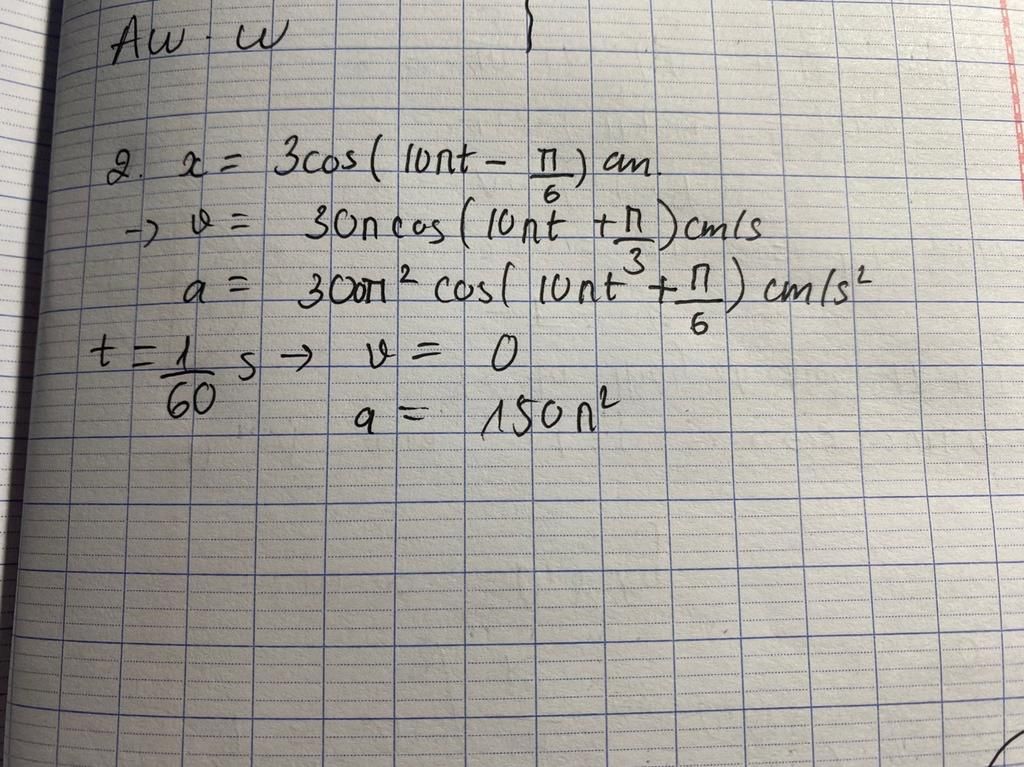 Aω · ω
2. x = 3cos(10πt - π/6) cm
→ v = 30π cos(10πt + π/3) cm/s
a = 300π² cos(10πt + π/6) cm/s²
t = 1/60 s → v = 0
a = 150π²